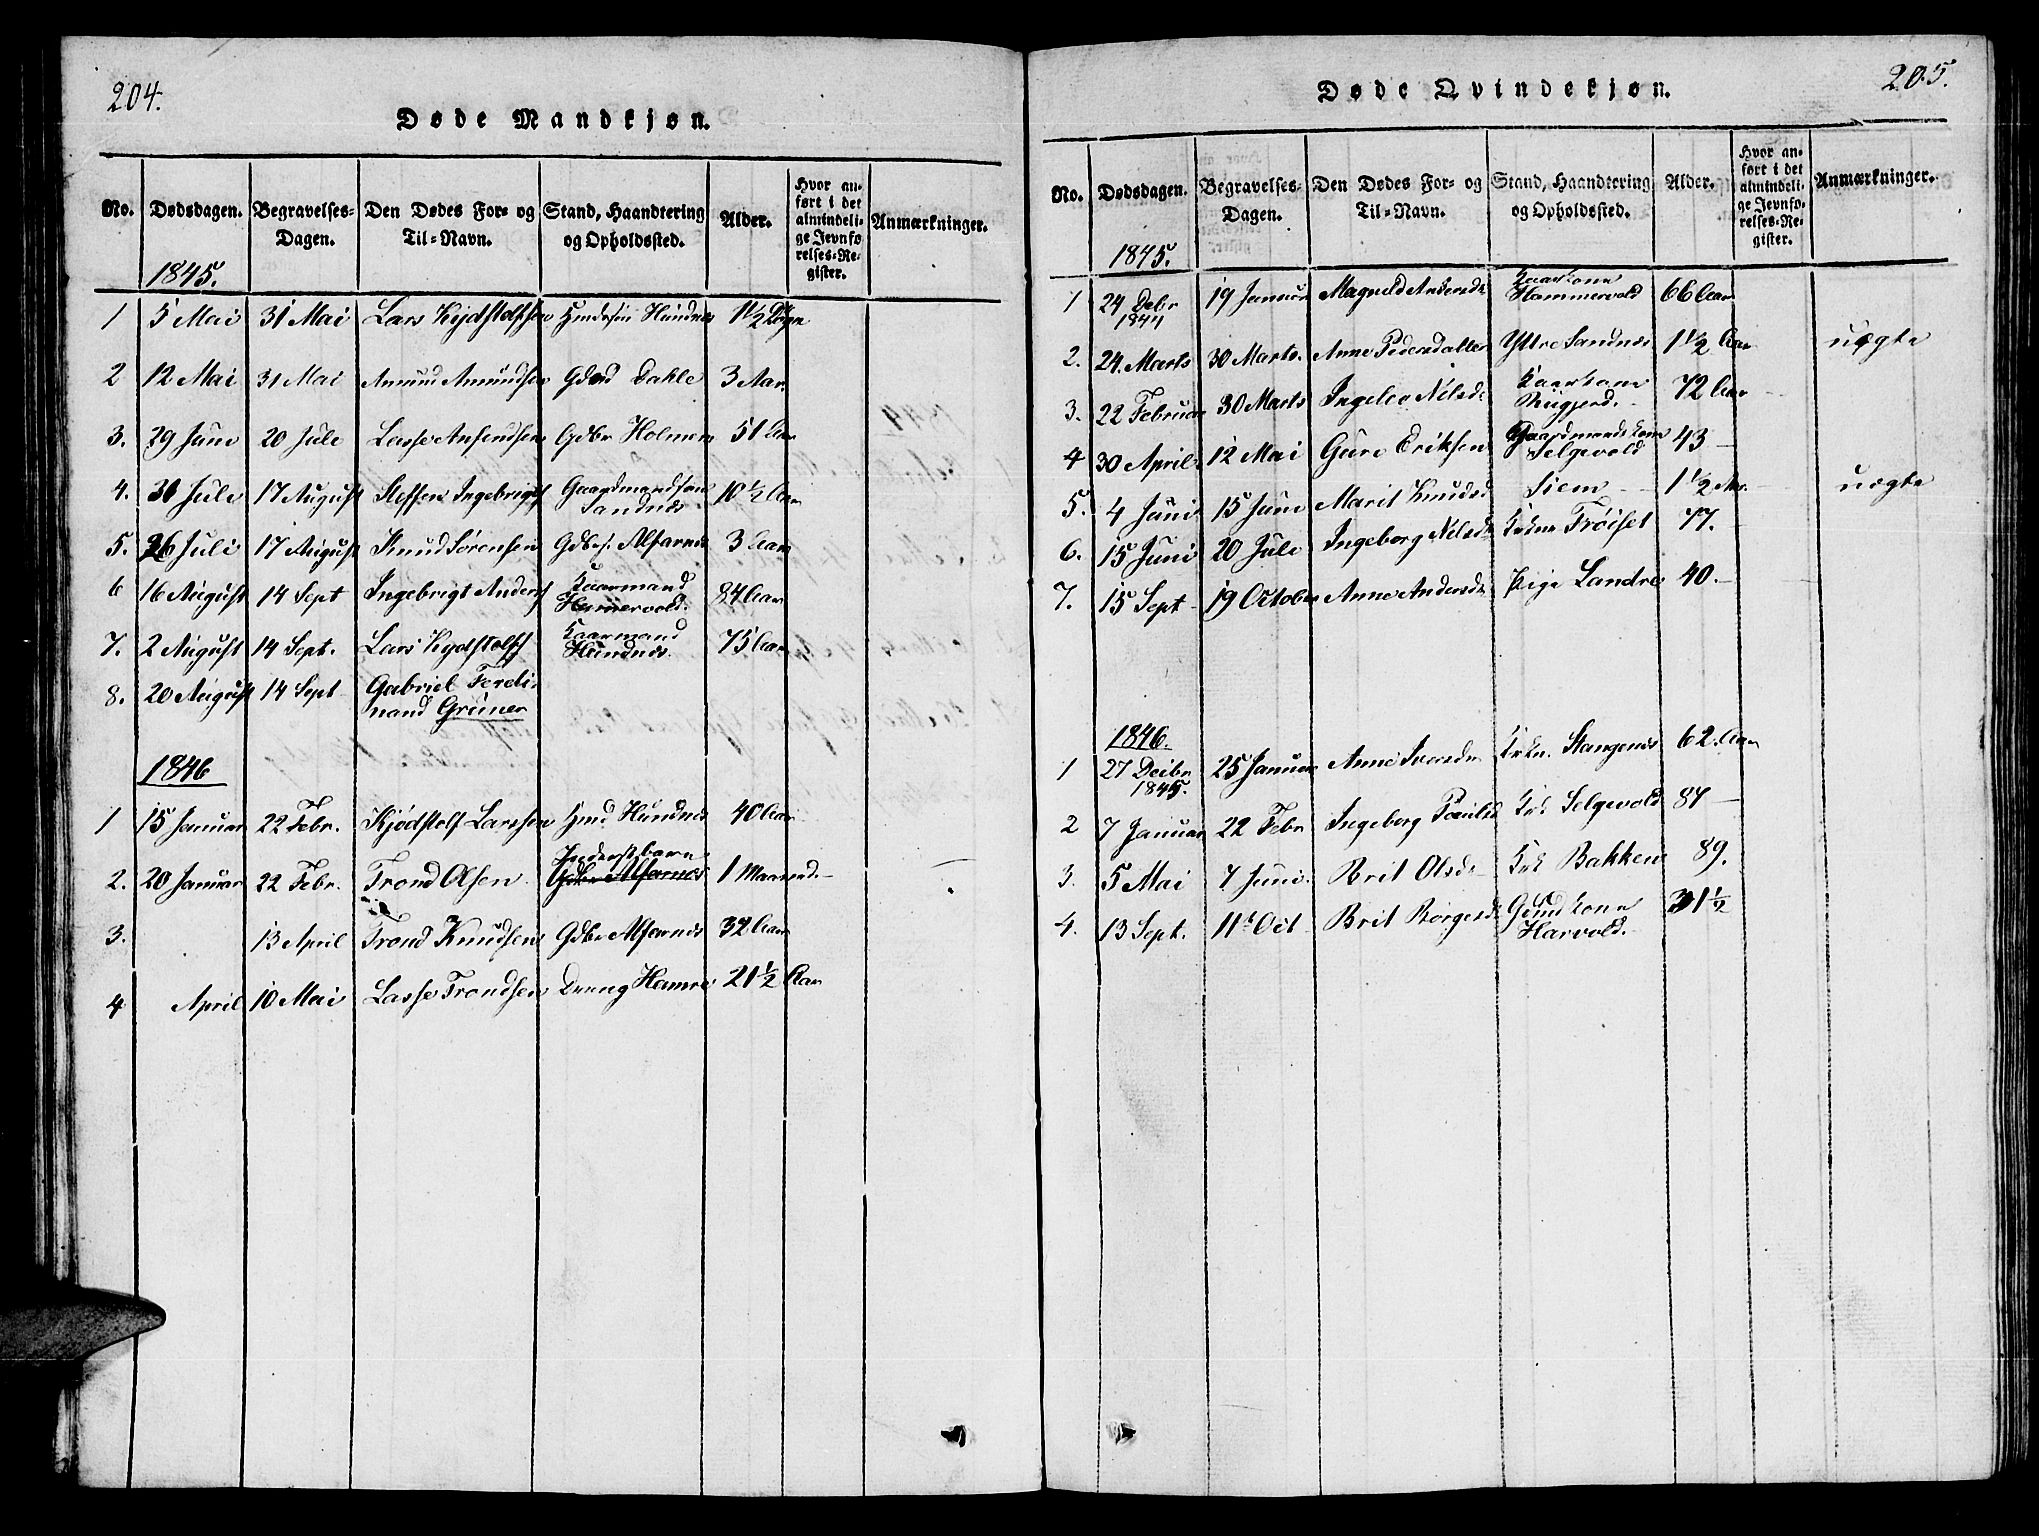 204.
Døde Mandkjøn.
No. Dødsdagen. Begravelses-Dagen. Den Dødes For- og Til-Navn. Stand, Haandtering og Opholdssted. Alder. Hvor anført i det almindelige Jevnførelses-Register. Anmærkninger.
1845.
1 5 Mai 31 Mai Lars Kydstolfsen Hundnes 1 1/2
2 12 Mai 31 Mai Amund Amundsen Dahle 3 Aar
3. 29 Juni 20 Jule Lasse Gdbr Holmen 51 Aar
4. 31 Jule 17 August Steffen Ingebrigts Gaardmandssøn Sandnes 10 1/2 Aar
5. 26 Juli 17 August Knud Sørensen Alfarnes 3 Aar
6 16 August 14 Sept Ingebrigt Anders Kaarmand Hamervold. 84 Aar
7. 2 August 14 Sept. Lars Kydstolfs Kaarmand Hundnes. 75 Aar
8. 20 August 14 Sept Gabriel Ferdinand Grüner
1846
1 15 Januar 22 Febr. Kjødstolf Larssen Hundnes 40 Aar
2. 20 Januar 22 Febr. Trond Olsen Inderstbarn Gdbr Alfarnes 1 Maaned.
3. 13 April Trond Knudsen Gdbr Alfarnes 32 Aar
4 April 10 Mai Lasse Trondsen Dreng Hamre 21 1/2 Aar
205.
Døde Qvindekjøn.
No. Dødsdagen. Begravelses-Dagen. Den Dødes For- og Til-Navn. Stand, Haandtering og Opholdssted. Alder. Hvor anført i det almindelige Jevnførelses-Register. Anmærkninger.
1845.
1 24 Debr 1844 19 Januar Magnild Andersdr Kaarkone Hammervold 66 Aar
2. 24. Marts 30 Marts. Anne Pedersdatter Yttre Sandnes 1 1/2 Aar uægte
3. 22 Februar 30 Marts Ingeleo Nilsdr Kaarkone 72 Aar
4 30 April 12 Mai Guro Eriksen Gaardmandskone Selgevold 43
5. 4 Juni 15 Juni Marit Knudsd Siem 1 1/2 Aar uægte
6. 15 Juni 20 Jule Ingeborg Nilsdr Trøiset 77.
7. 15 Sept 19 October Anne Andersdr Pige Landre 40.
1846.
1 27 Decbr 1845. 25 Januar Anne Iversdr Stangenes 62. Aar
2 7 Januar 22 Febr Ingeborg Poulsd Selgevold 87
3. 5 Mai 7 Juni. Brit Olsdr Bakken 89.
4. 13 Sept. 11te Oct Brit Børgesdr Gmdkone Harvold. 31 1/2